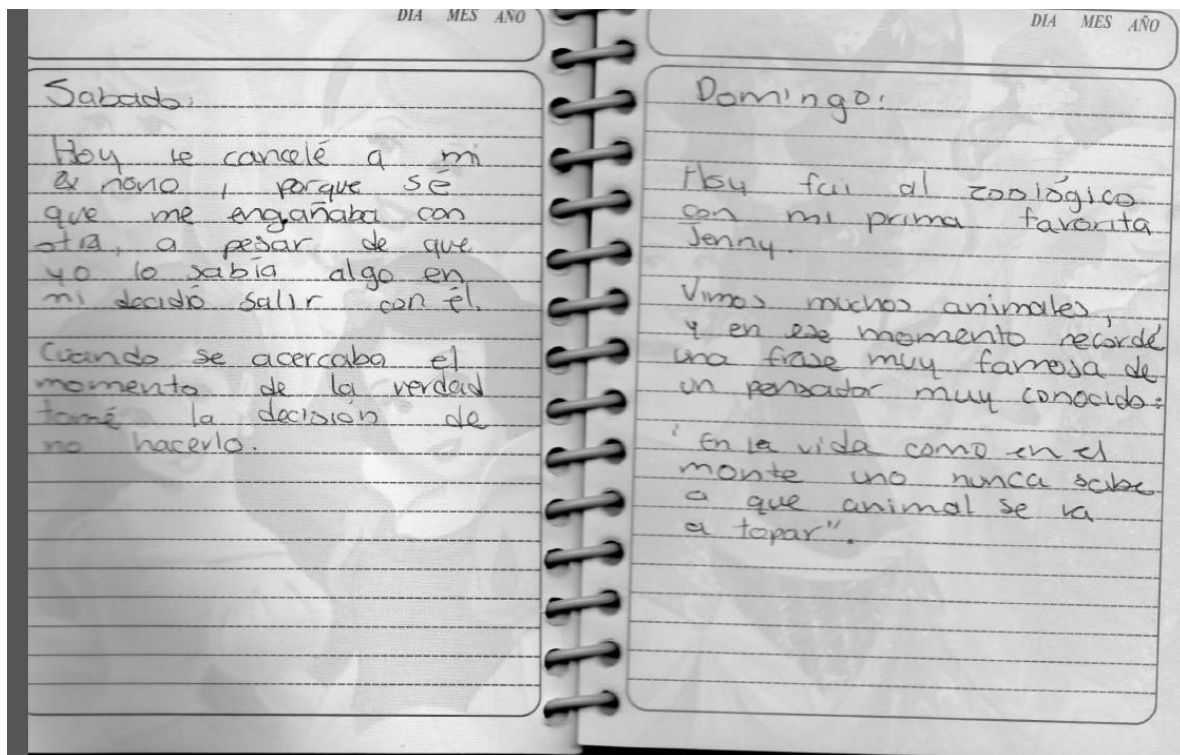 DIA MES AÑO
Sabado:
Hoy le cancelé a mi
nono, porque sé
que me engañaba con
otra, a pesar de que
yo lo sabía algo en
mi decidió salir con él.
Cuando se acercaba el
momento de la verdad
tomé la decisión de
no hacerlo.
DIA MES AÑO
Domingo:
Hoy fui al zoológico
con mi prima favorita
Jenny.
Vimos muchos animales,
y en ese momento recordé
una frase muy famosa de
un pensador muy conocido:
"En la vida como en el
monte uno nunca sabe
a que animal se va
a topar".